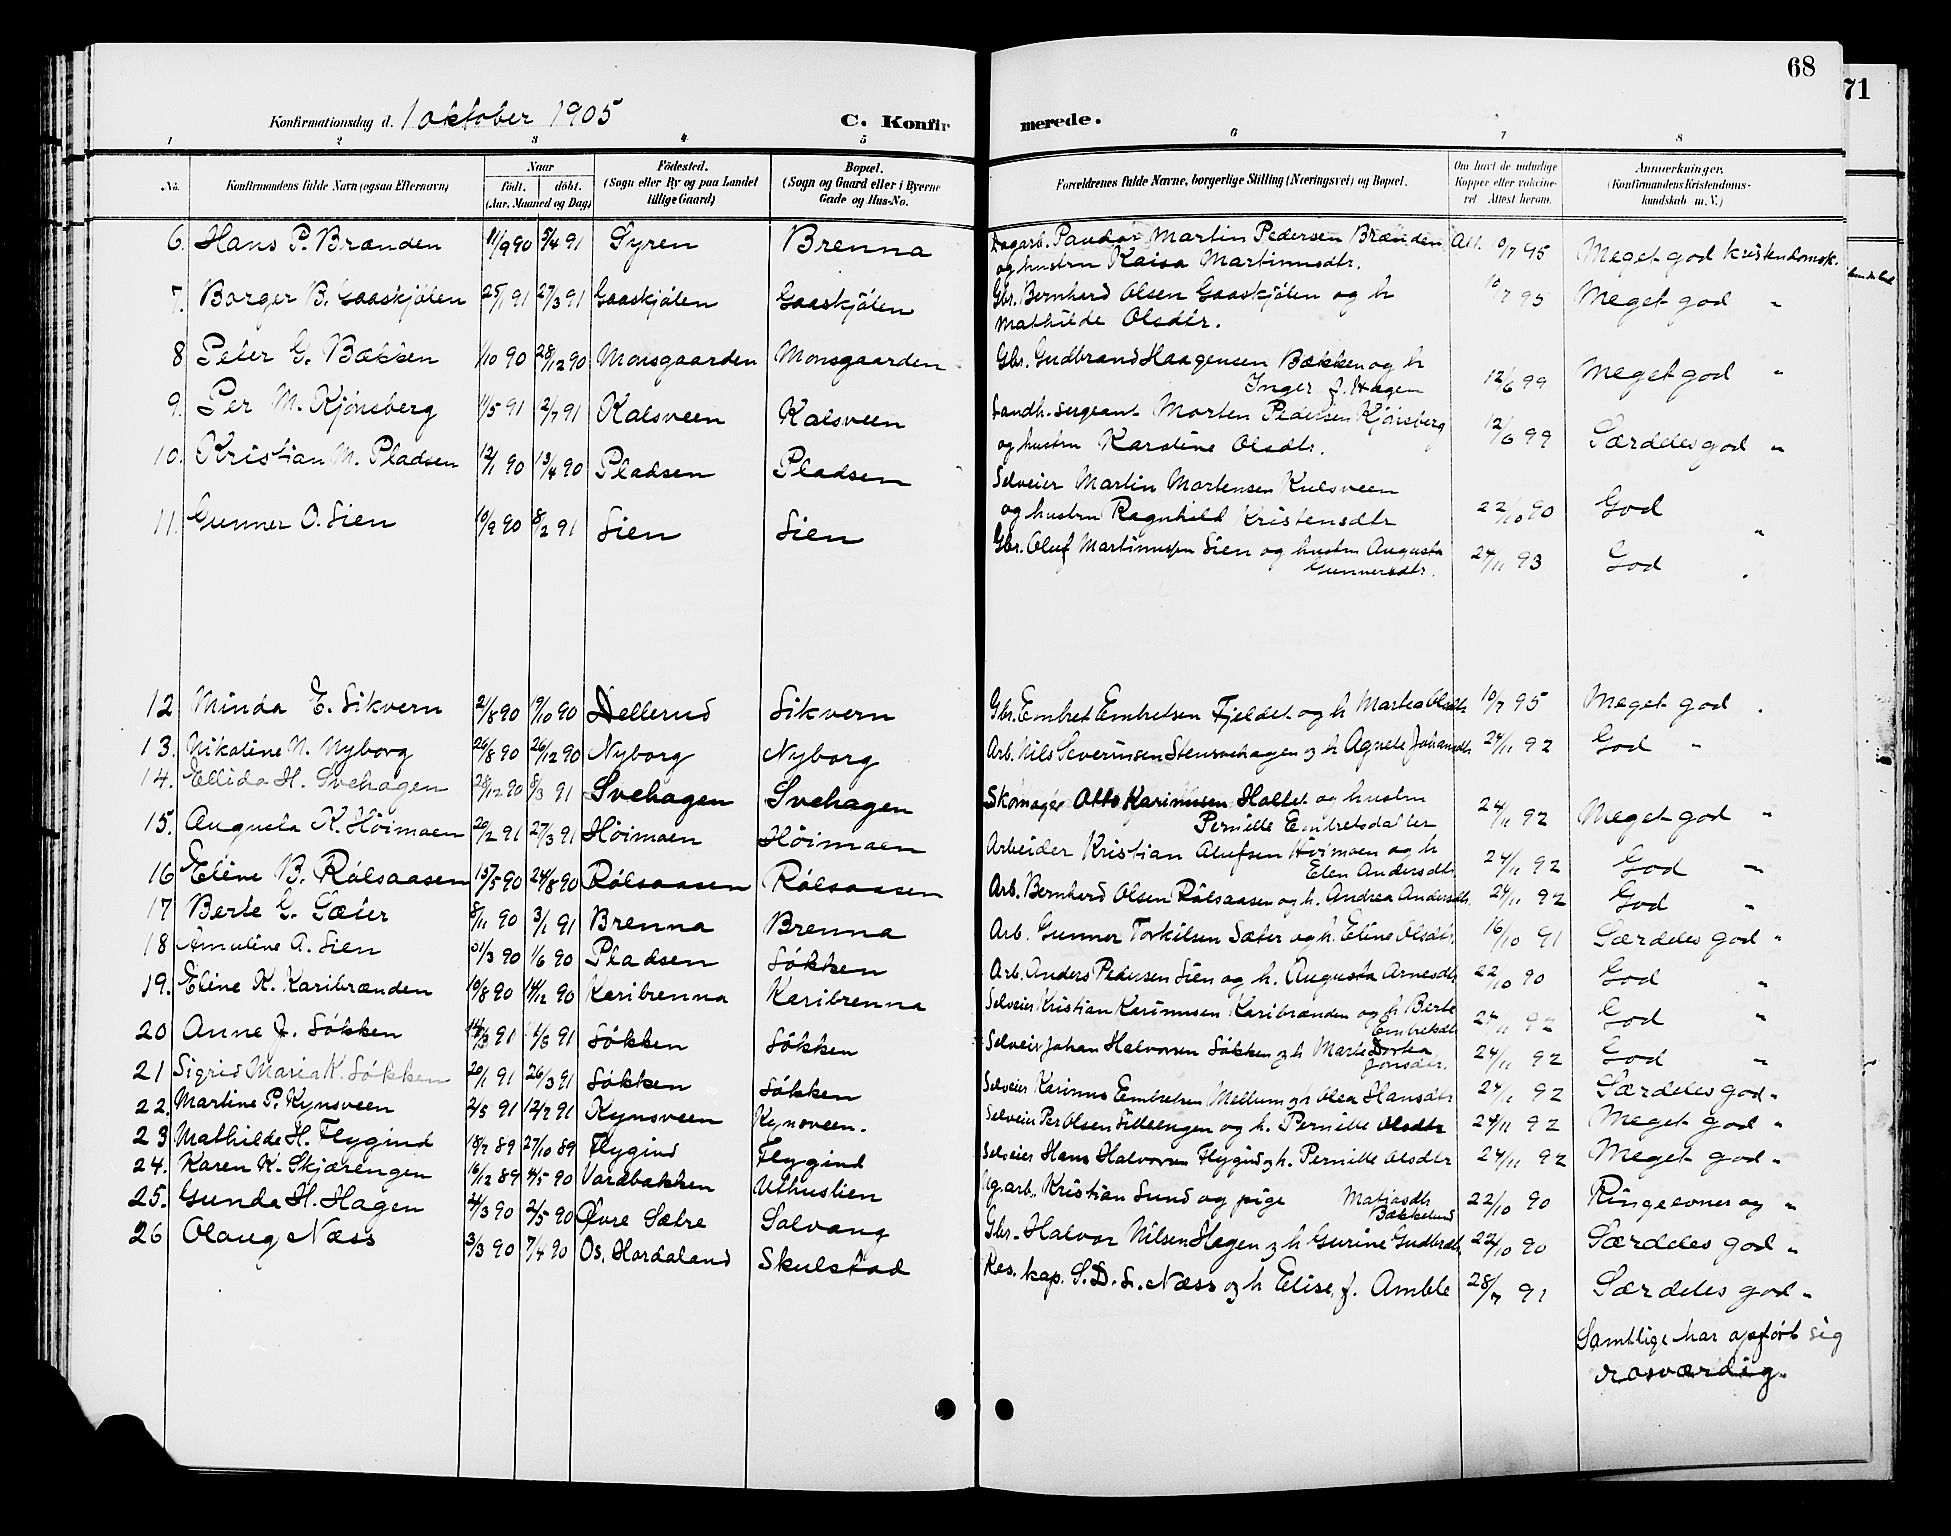 68
71
Konfirmationsdag d. 1 oktober 1905
C. Konfirmerede.
1 2 3 4 5 6 7 8
No.
Konfirmandens fulde Navn (ogsaa Efternavn)
Naar
født. døbt.
(Aar, Maaned og Dag)
Fødested.
(Sogn eller By og paa Landet
tillige Gaard)
Bopæl.
(Sogn og Gaard eller i Byerne
Gade og Hus-No.
Forældrenes fulde Navne, borgerlige Stilling (Næringsvei) og Bopæl.
Om havt de naturlige
Kopper eller vakcine-
ret Attest herom.
Anmærkninger.
(Konfirmandens Kristendoms-
kundskab m. V.)
6. Hans P. Brænden 11/9 90 5/4 91 Syren Brenna
Dagarb. Martin Pedersen Brænden Att. 10/7 95 Meget god kristendomsk.
og hustru Kaisa Martinusdtr.
7. Borger B. Gaaskjølen 25/1 91 27/3 91 Gaaskjølen Gaaskjølen
Gbr. Bernhard Olsen Gaaskjølen og h 10/7 95 Meget god "
Mathilde Olsdtr.
8 Peter G. Bækken 1/10 90 28/12 90 Monsgaarden Monsgaarden
Gbr. Gudbrand Haagensen Bækken og h
Inger f. Hagen 12/6 99 Meget god "
9. Per M. Kjønsberg 11/5 91 2/7 91 Kalsveen Kalsveen
Landh. sergeant Morten Pedersen Kjønsberg
og hustru Karoline Olsdtr. 12/6 99 Særdeles god "
10. Kristian M. Pladsen 12/1 90 13/4 90 Pladsen Pladsen
Selveier Martin Mortensen Kulsveen
og hustru Ragnhild Kristensdtr 22/10 90 God "
11. Gunner O. Lien 10/9 90 8/2 91 Lien Lien
Gbr. Oluf Martinussen Lien og hustru Augusta
Gunnersdtr. 24/11 93 God "
12 Minda E. Sikvern 21/8 90 19/10 90 Nellerud Sikvern
Gbr. Embret Embretsen Fjeldet og h Martea Olsdtr 10/7 95 Meget god "
13. Nikoline N. Nyborg 26/8 90 26/12 90 Nyborg Nyborg
Arb. Nils Severinsen Stensvehagen og h Agnete Johansdtr 24/11 92 God "
14. Ellida H. Svehagen 28/12 90 8/3 91 Svehagen Svehagen
Skomager Otto Karinusen Holtet og hustru
Pernille Embretsdatter 24/11 92 Meget god "
15. Augusta K. Høimoen 20/2 91 27/3 91 Høimoen Høimoen
Arbeider Kristian Olufsen Høimoen og h
Elen Andersdtr. 24/11 92 God "
16 Eline B. Rølsaasen 15/5 90 24/8 90 Rølsaasen Rølsaasen
Arb. Bernhard Olsen Rølsaasen og h. Andrea Andersdtr. 24/11 92 God "
17 Berte G. Sæter 8/11 90 3/1 91 Brenna Brenna
Arb. Gunner Torkilsen Sæter og h. Eline Olsdtr 16/10 91 Særdeles god "
18 Amutine A. Lien 31/3 90 1/6 90 Pladsen Løkken
Arb. Anders Pedersen Lien og h. Augusta Arnesdtr 22/10 90 God "
19. Eline K. Karibrænden 10/8 90 14/12 90 Karibrenna Karibrenna
Selveier Kristian Karinusen Karibrænden og h Berte
Embretsdtr 24/11 92 God "
20 Anne J. Løkken 14/3 91 1/6 91 Løkken Løkken
Selveier Johan Halvorsen Løkken og h Marte Dortea
Jonsdtr. 24/11 92 God "
21 Sigrid Maria K. Løkken 20/1 91 26/3 91 Løkken Løkken
Selveier Karinus Embretsen Mellum og h Olea Hansdtr 24/11 92 Særdeles god "
22. Martine P. Kynsveen 2/5 91 12/7 91 Kynsveen Kynsveen.
Selveier Per Olsen og h. Pernille Olsdtr 24/11 92 Meget god "
23 Mathilde H. Flygind 18/7 89 27/10 89 Flygind Flygind
Selveier Hans Halvorsen Flygind og h. Pernille Olsdtr 24/11 92 Meget god "
24. Karen K. Skjærengen 16/12 89 4/5 90 Vardbakken Uthuslien
Ug.arb. Kristian Lund og pige Matiasdtr
Bækkelund 22/10 90 Ringe evner og "
25. Gunda H. Hagen 24/3 90 2/5 90 Øvre Sætre Solvang
Gbr. Halvor Nilsen Hagen og h Gurine Gudbrdtr 22/10 90 Særdeles god "
26 Olaug Næss 3/3 90 7/4 90 Os, Hordaland Skulstad
Res. kap. S. D. L. Næss og h Elise, f. Amble 28/7 91 Særdeles god "
Samtlige har opført sig
rosværdig.